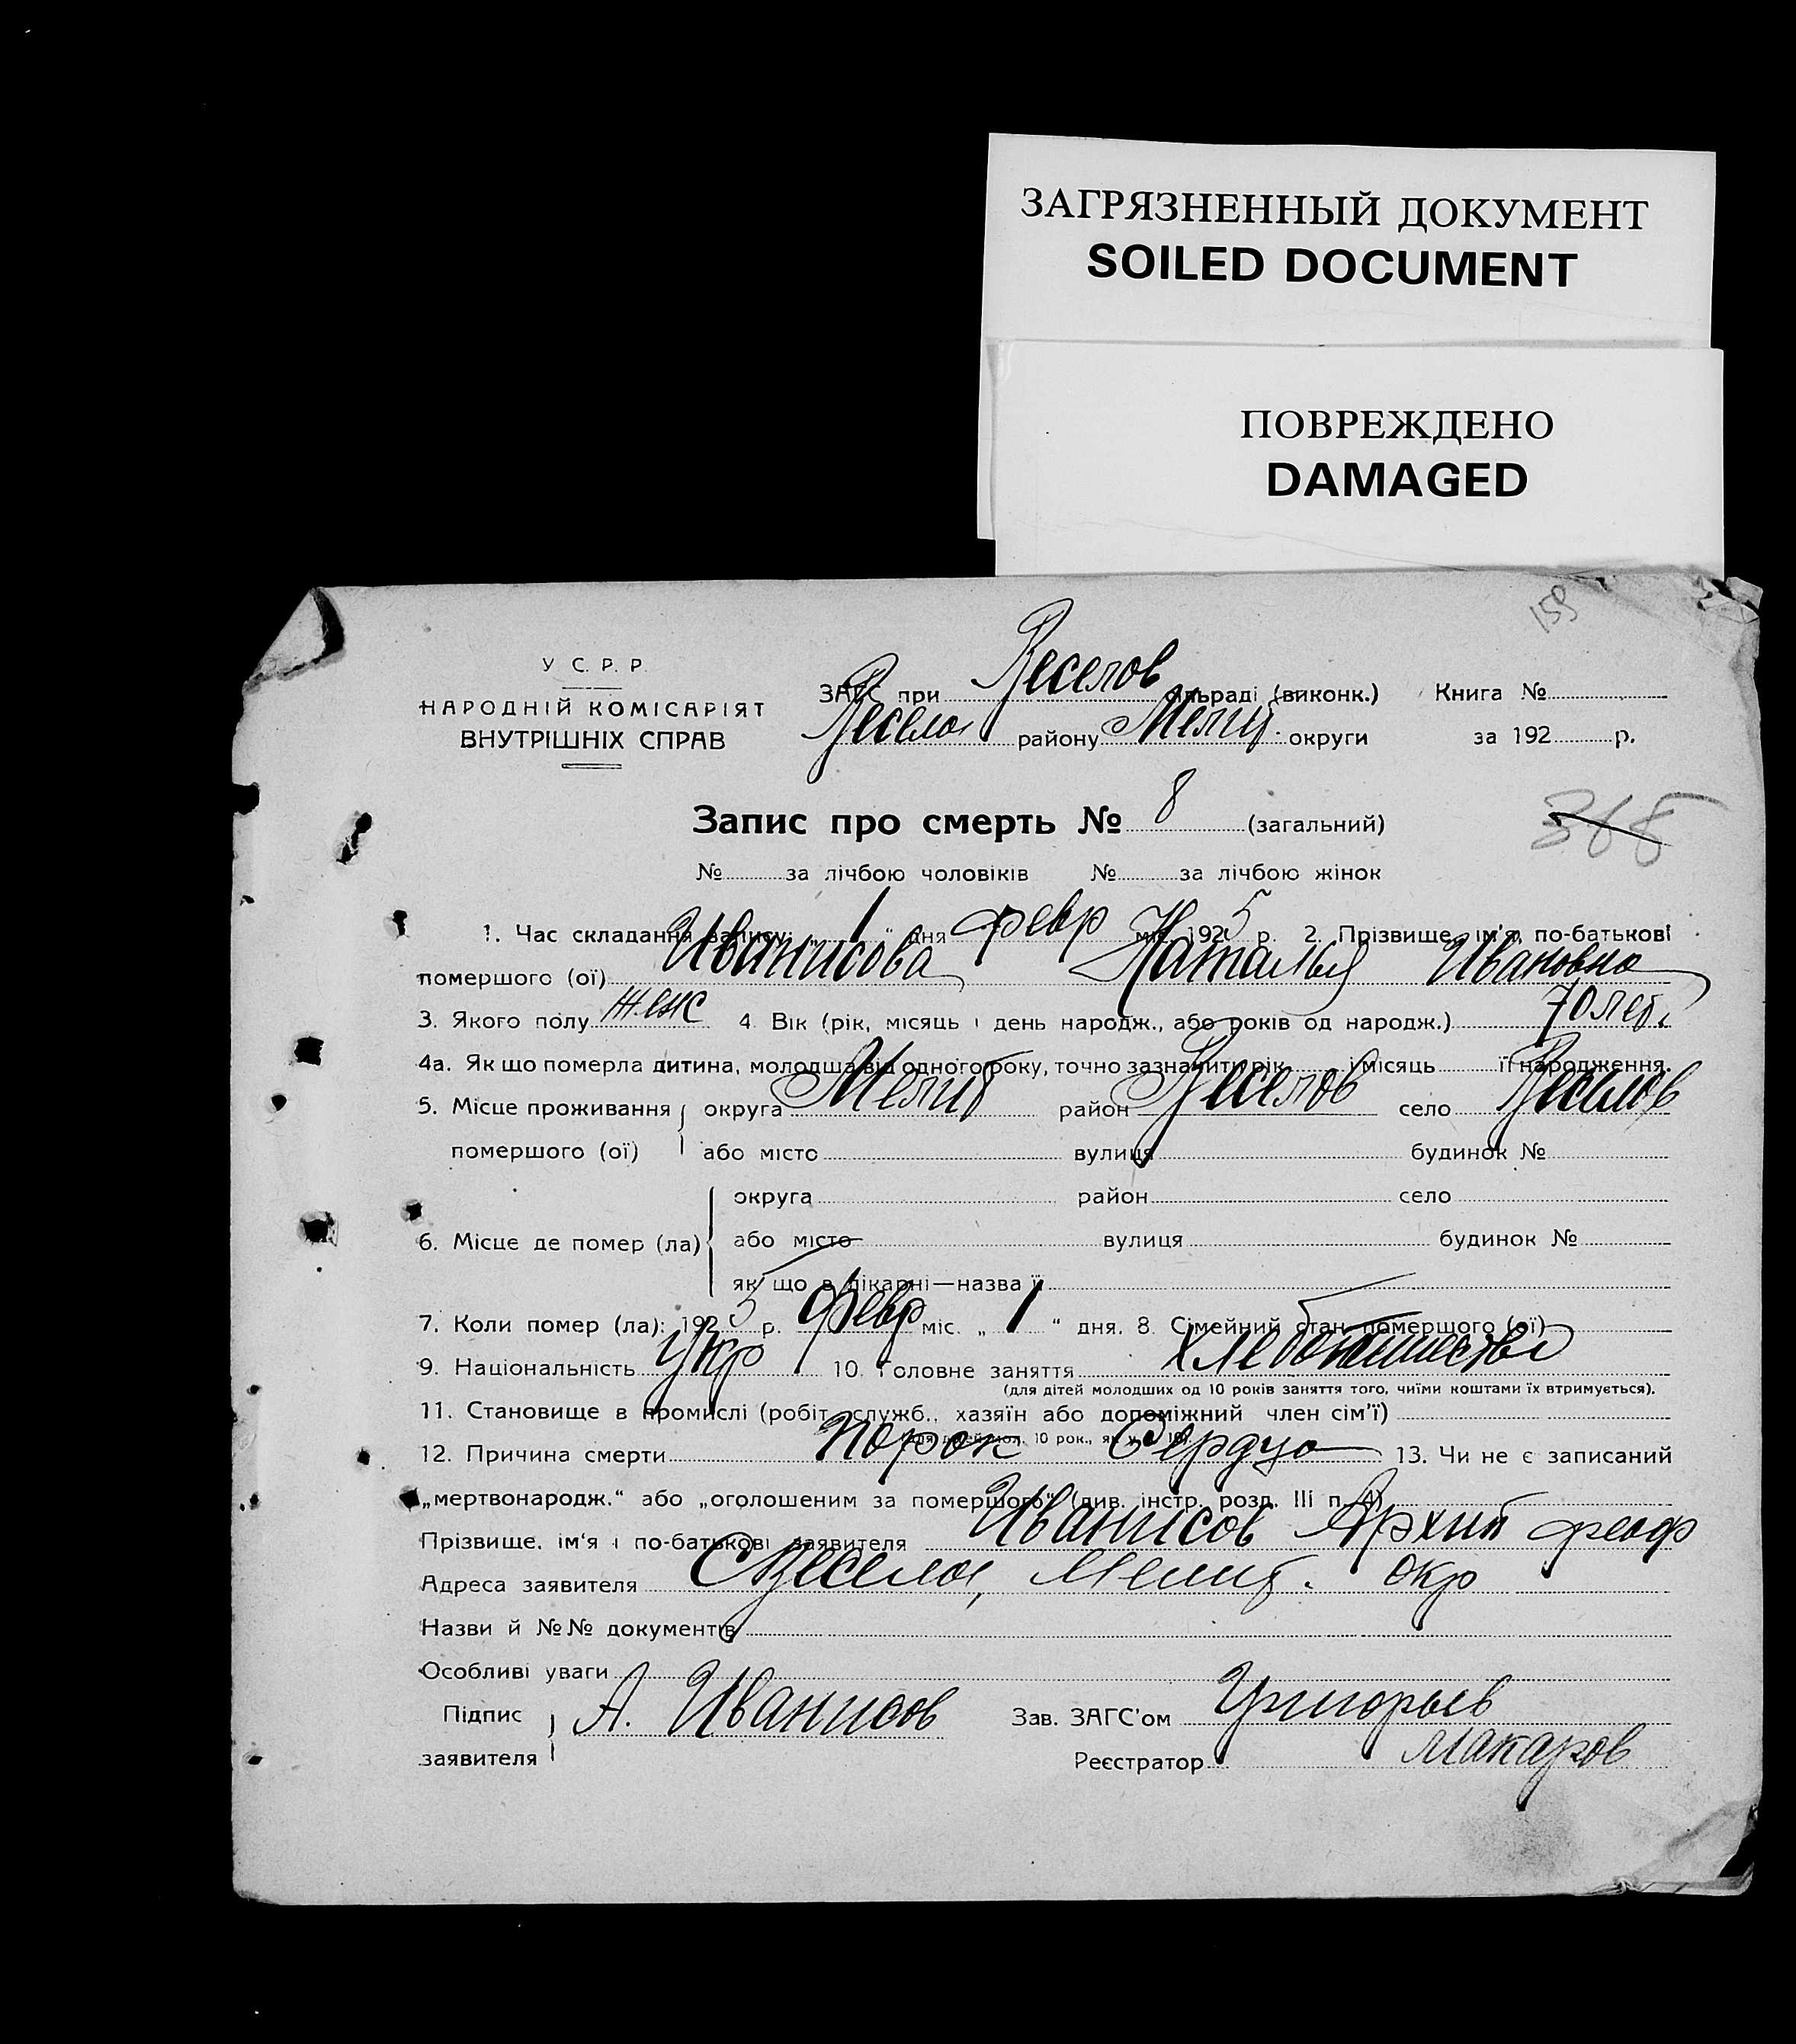 ЗАГРЯЗНЕННЫЙ ДОКУМЕНТ
SOILED DOCUMENT
ПОВРЕЖДЕНО
DAMAGED
159
У С. Р. Р.
НАРОДНІЙ КОМІСАРІЯТ
ВНУТРІШНІХ СПРАВ
ЗАГС при Веселов сільраді (виконк.) Книга №
Весело району Мелит. округи за 192 р.
Запис про смерть № 8 (загальний)
№ за лічбою чоловіків № за лічбою жінок
1. Час складання запису: „ 1 “ дня февр міс. 1925 р. 2. Прізвище, ім'я, по-батькові
помершого (ої) Иванисова Наталья Ивановна
3. Якого полу женс 4. Вік (рік, місяць і день народж., або років од народж.) 70 лет.
4а. Як що померла дитина, молодша від одного року, точно зазначити рік і місяць її народження.
5. Місце проживання округа Мелит район Веселов село Веселов
помершого (ої) або місто вулиця будинок №
округа район село
6. Місце де помер (ла) або місто вулиця будинок №
як що в лікарні—назва її
7. Коли помер (ла): 1925 р. февр міс. „ 1 “ дня. 8. Сімейний стан помершого (ої)
9. Національність Укр 10. Головне заняття
(для дітей молодших од 10 років заняття того, чиїми коштами їх втримується).
11. Становище в промислі (робіт., служб., хазяїн або допоміжний член сім'ї)
12. Причина смерти порок Сердца 13. Чи не є записаний
„мертвонародж.“ або „оголошеним за помершого“ (див. інстр. розд. III п. 4)
Прізвище, ім'я і по-батькові заявителя Иванисов Архип феоф
Адреса заявителя С Весело, Мелит. окр
Назви й №№ документів
Особливі уваги
Підпис А. Иванисов Зав. ЗАГС'ом Григорьев
заявителя Реєстратор Макаров